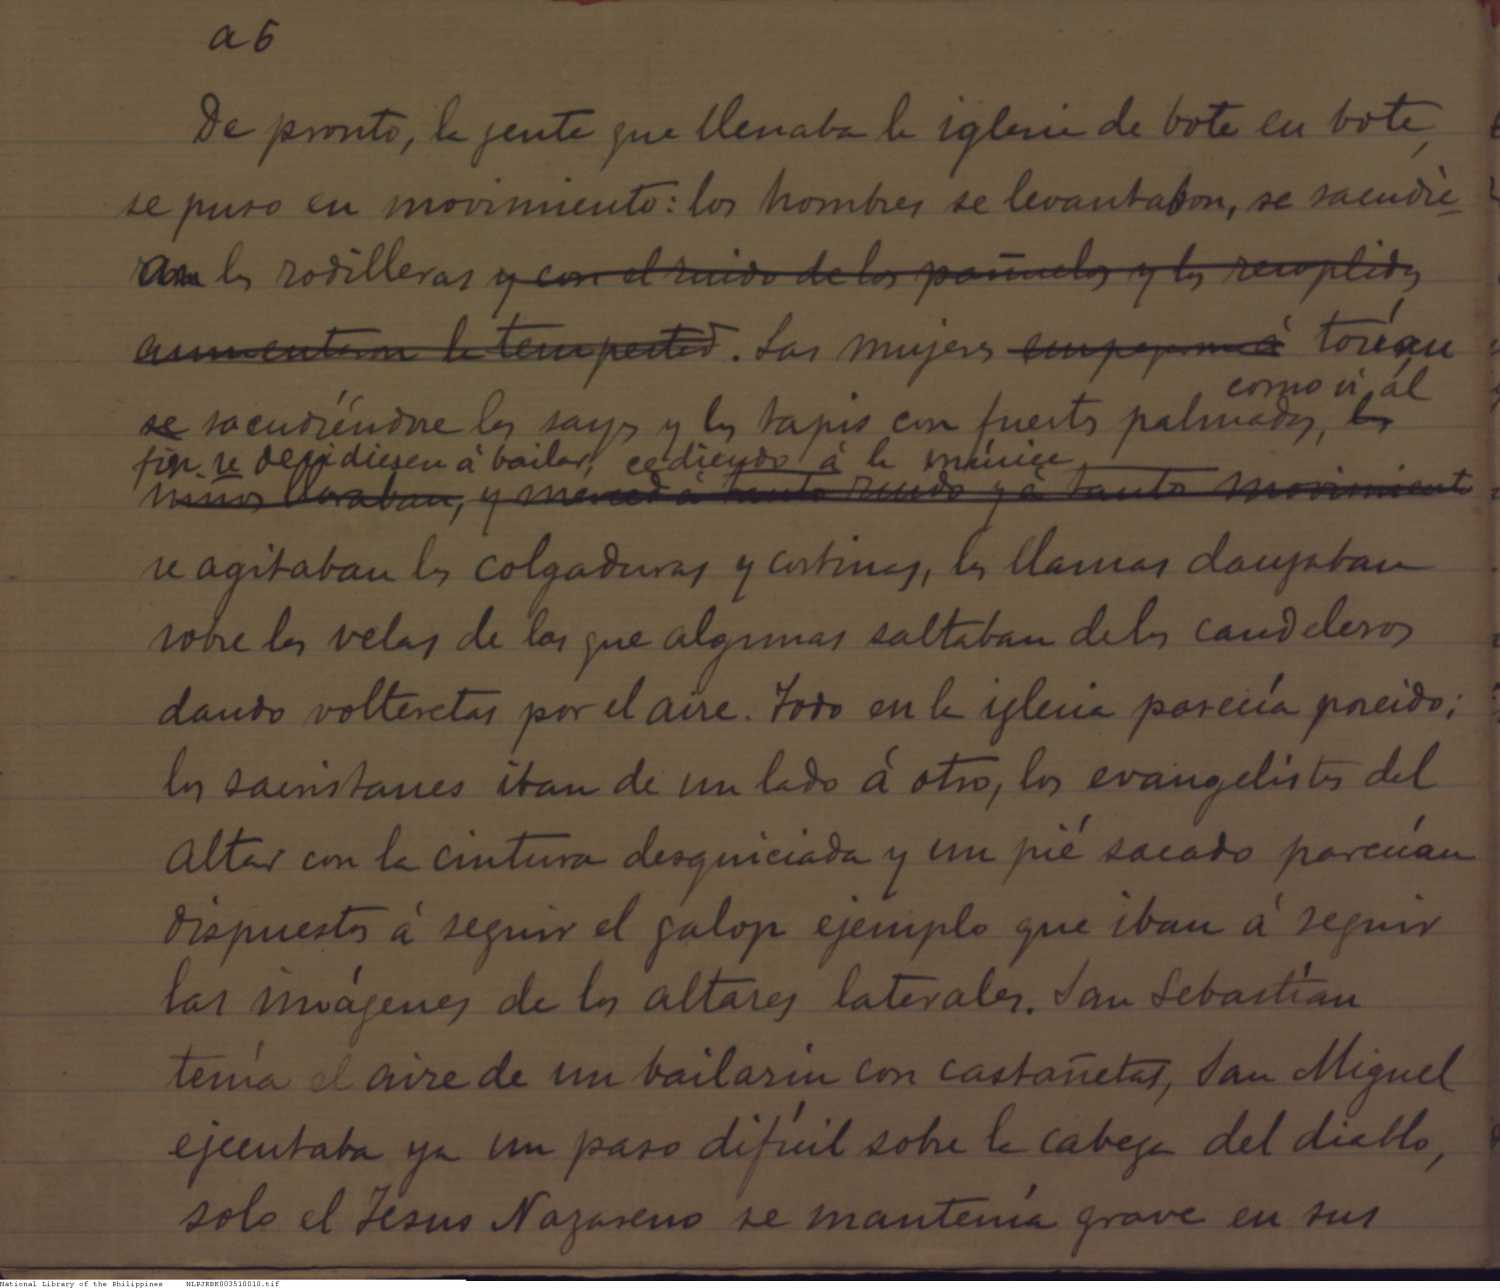 a 6
De pronto, la gente que llenaba la iglesia de bote en bote,
se puso en movimiento: los hombres se levantaron, se sacudie-
ron las rodilleras y con el ruido de los pañuelos y los resoplidos
aumentaron la tempestad. Las mujeres empezaron á tosían
como si al
se sacudiéndose las sayas y los tapis con fuertes palmadas, los
fin se decidiesen á bailar, cediendo á la música
niños lloraban, y merced á tanto ruido y á tanto movimiento
se agitaban las colgaduras y cortinas, las llamas danzaban
sobre las velas de las que algunas saltaban de los candeleros
dando volteretas por el aire. Todo en la iglesia parecía poseido;
los sacristanes iban de un lado á otro, los evangelistas del
altar con la cintura desquiciada y un pié sacado parecían
dispuestos á seguir el galop ejemplo que iban á seguir
las imágenes de los altares laterales. San Sebastían
tenía el aire de un bailarin con castañetas, San Miguel
ejecutaba ya un paso difícil sobre la cabeza del diablo,
solo el Jesus Nazareno se mantenía grave en sus
National Library of the Philippines NLPJRBK003510010.tif